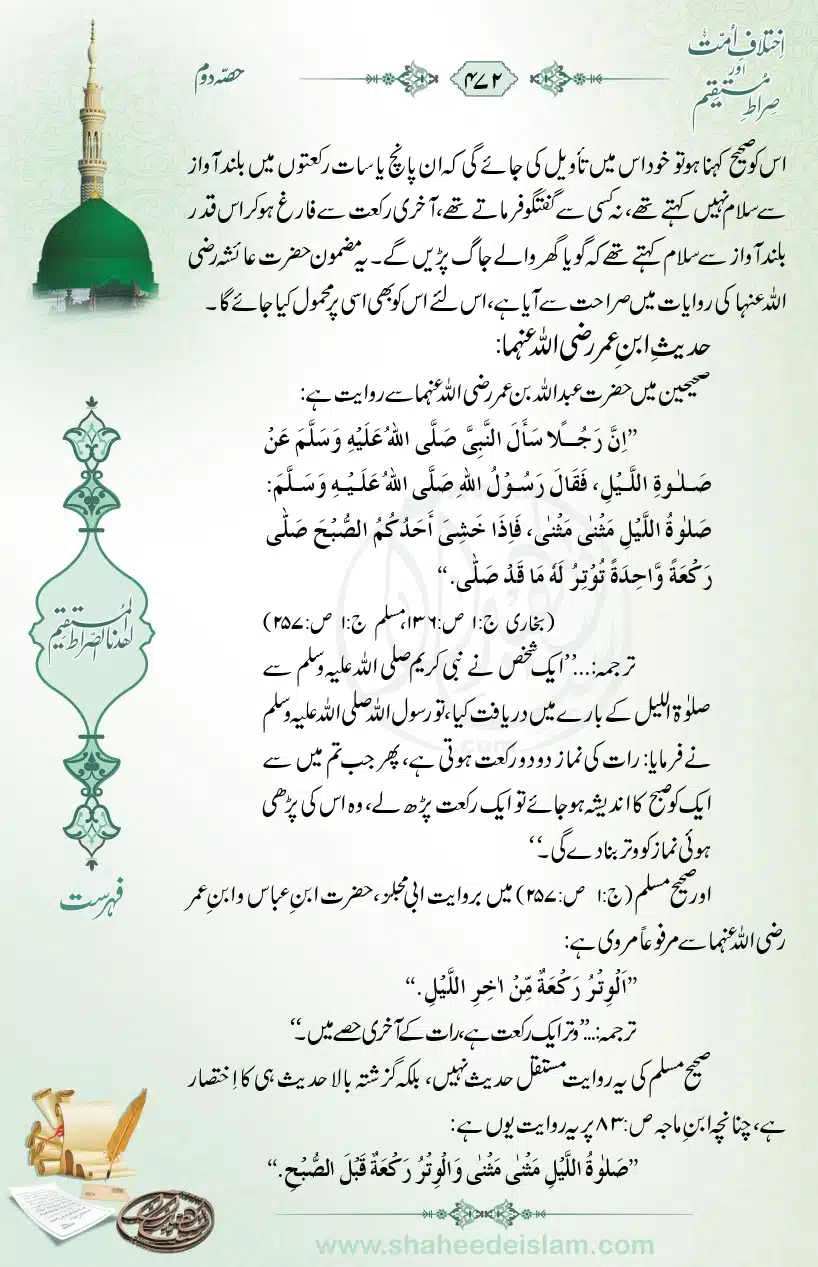 اِختلافِ اُمّت
اور
صِراطِ مُستقیم
۴۷۲
حصّہ دوم
اس کو صحیح کہنا ہو تو خود اس میں تأویل کی جائے گی کہ ان پانچ یا سات رکعتوں میں بلند آواز
سے سلام نہیں کہتے تھے، نہ کسی سے گفتگو فرماتے تھے، آخری رکعت سے فارغ ہوکر اس قدر
بلند آواز سے سلام کہتے تھے کہ گویا گھر والے جاگ پڑیں گے۔ یہ مضمون حضرت عائشہ رضی
اللہ عنہا کی روایات میں صراحت سے آیا ہے، اس لئے اس کو بھی اسی پر محمول کیا جائے گا۔
حدیثِ ابنِ عمر رضی اللہ عنہما:
صحیحین میں حضرت عبداللہ بن عمر رضی اللہ عنہما سے روایت ہے:
”اِنَّ رَجُـلًا سَأَلَ النَّبِیَّ صَلَّی اللهُ عَلَیْهِ وَسَلَّمَ عَنْ
صَلٰوةِ اللَّیْلِ، فَقَالَ رَسُوْلُ اللهِ صَلَّی اللهُ عَلَیْهِ وَسَلَّمَ:
صَلٰوةُ اللَّیْلِ مَثْنٰی مَثْنٰی، فَاِذَا خَشِیَ أَحَدُکُمُ الصُّبْحَ صَلّٰی
رَکْعَةً وَّاحِدَةً تُوْتِرُ لَهٗ مَا قَدْ صَلّٰی.“
(بخاری ج:۱ ص:۱۳۶، مسلم ج:۱ ص:۲۵۷)
ترجمہ:...”ایک شخص نے نبی کریم صلی اللہ علیہ وسلم سے
صلوٰة اللیل کے بارے میں دریافت کیا، تو رسول اللہ صلی اللہ علیہ وسلم
نے فرمایا: رات کی نماز دو دو رکعت ہوتی ہے، پھر جب تم میں سے
ایک کو صبح کا اندیشہ ہوجائے تو ایک رکعت پڑھ لے، وہ اس کی پڑھی
ہوئی نماز کو وتر بنادے گی۔“
اور صحیح مسلم (ج:۱ ص:۲۵۷) میں بروایت ابی مجلز، حضرت ابنِ عباس و ابنِ عمر
رضی اللہ عنہما سے مرفوعاً مروی ہے:
”اَلْوِتْرُ رَکْعَةٌ مِّنْ اٰخِرِ اللَّیْلِ.“
ترجمہ:...”وتر ایک رکعت ہے، رات کے آخری حصے میں۔“
صحیح مسلم کی یہ روایت مستقل حدیث نہیں، بلکہ گزشتہ بالا حدیث ہی کا اِختصار
ہے، چنانچہ ابنِ ماجہ ص:۸۳ پر یہ روایت یوں ہے:
”صَلٰوةُ اللَّیْلِ مَثْنٰی مَثْنٰی وَالْوِتْرُ رَکْعَةٌ قَبْلَ الصُّبْحِ.“
اهدنا الصّراط المُستقیم
فہرست
www.shaheedeislam.com